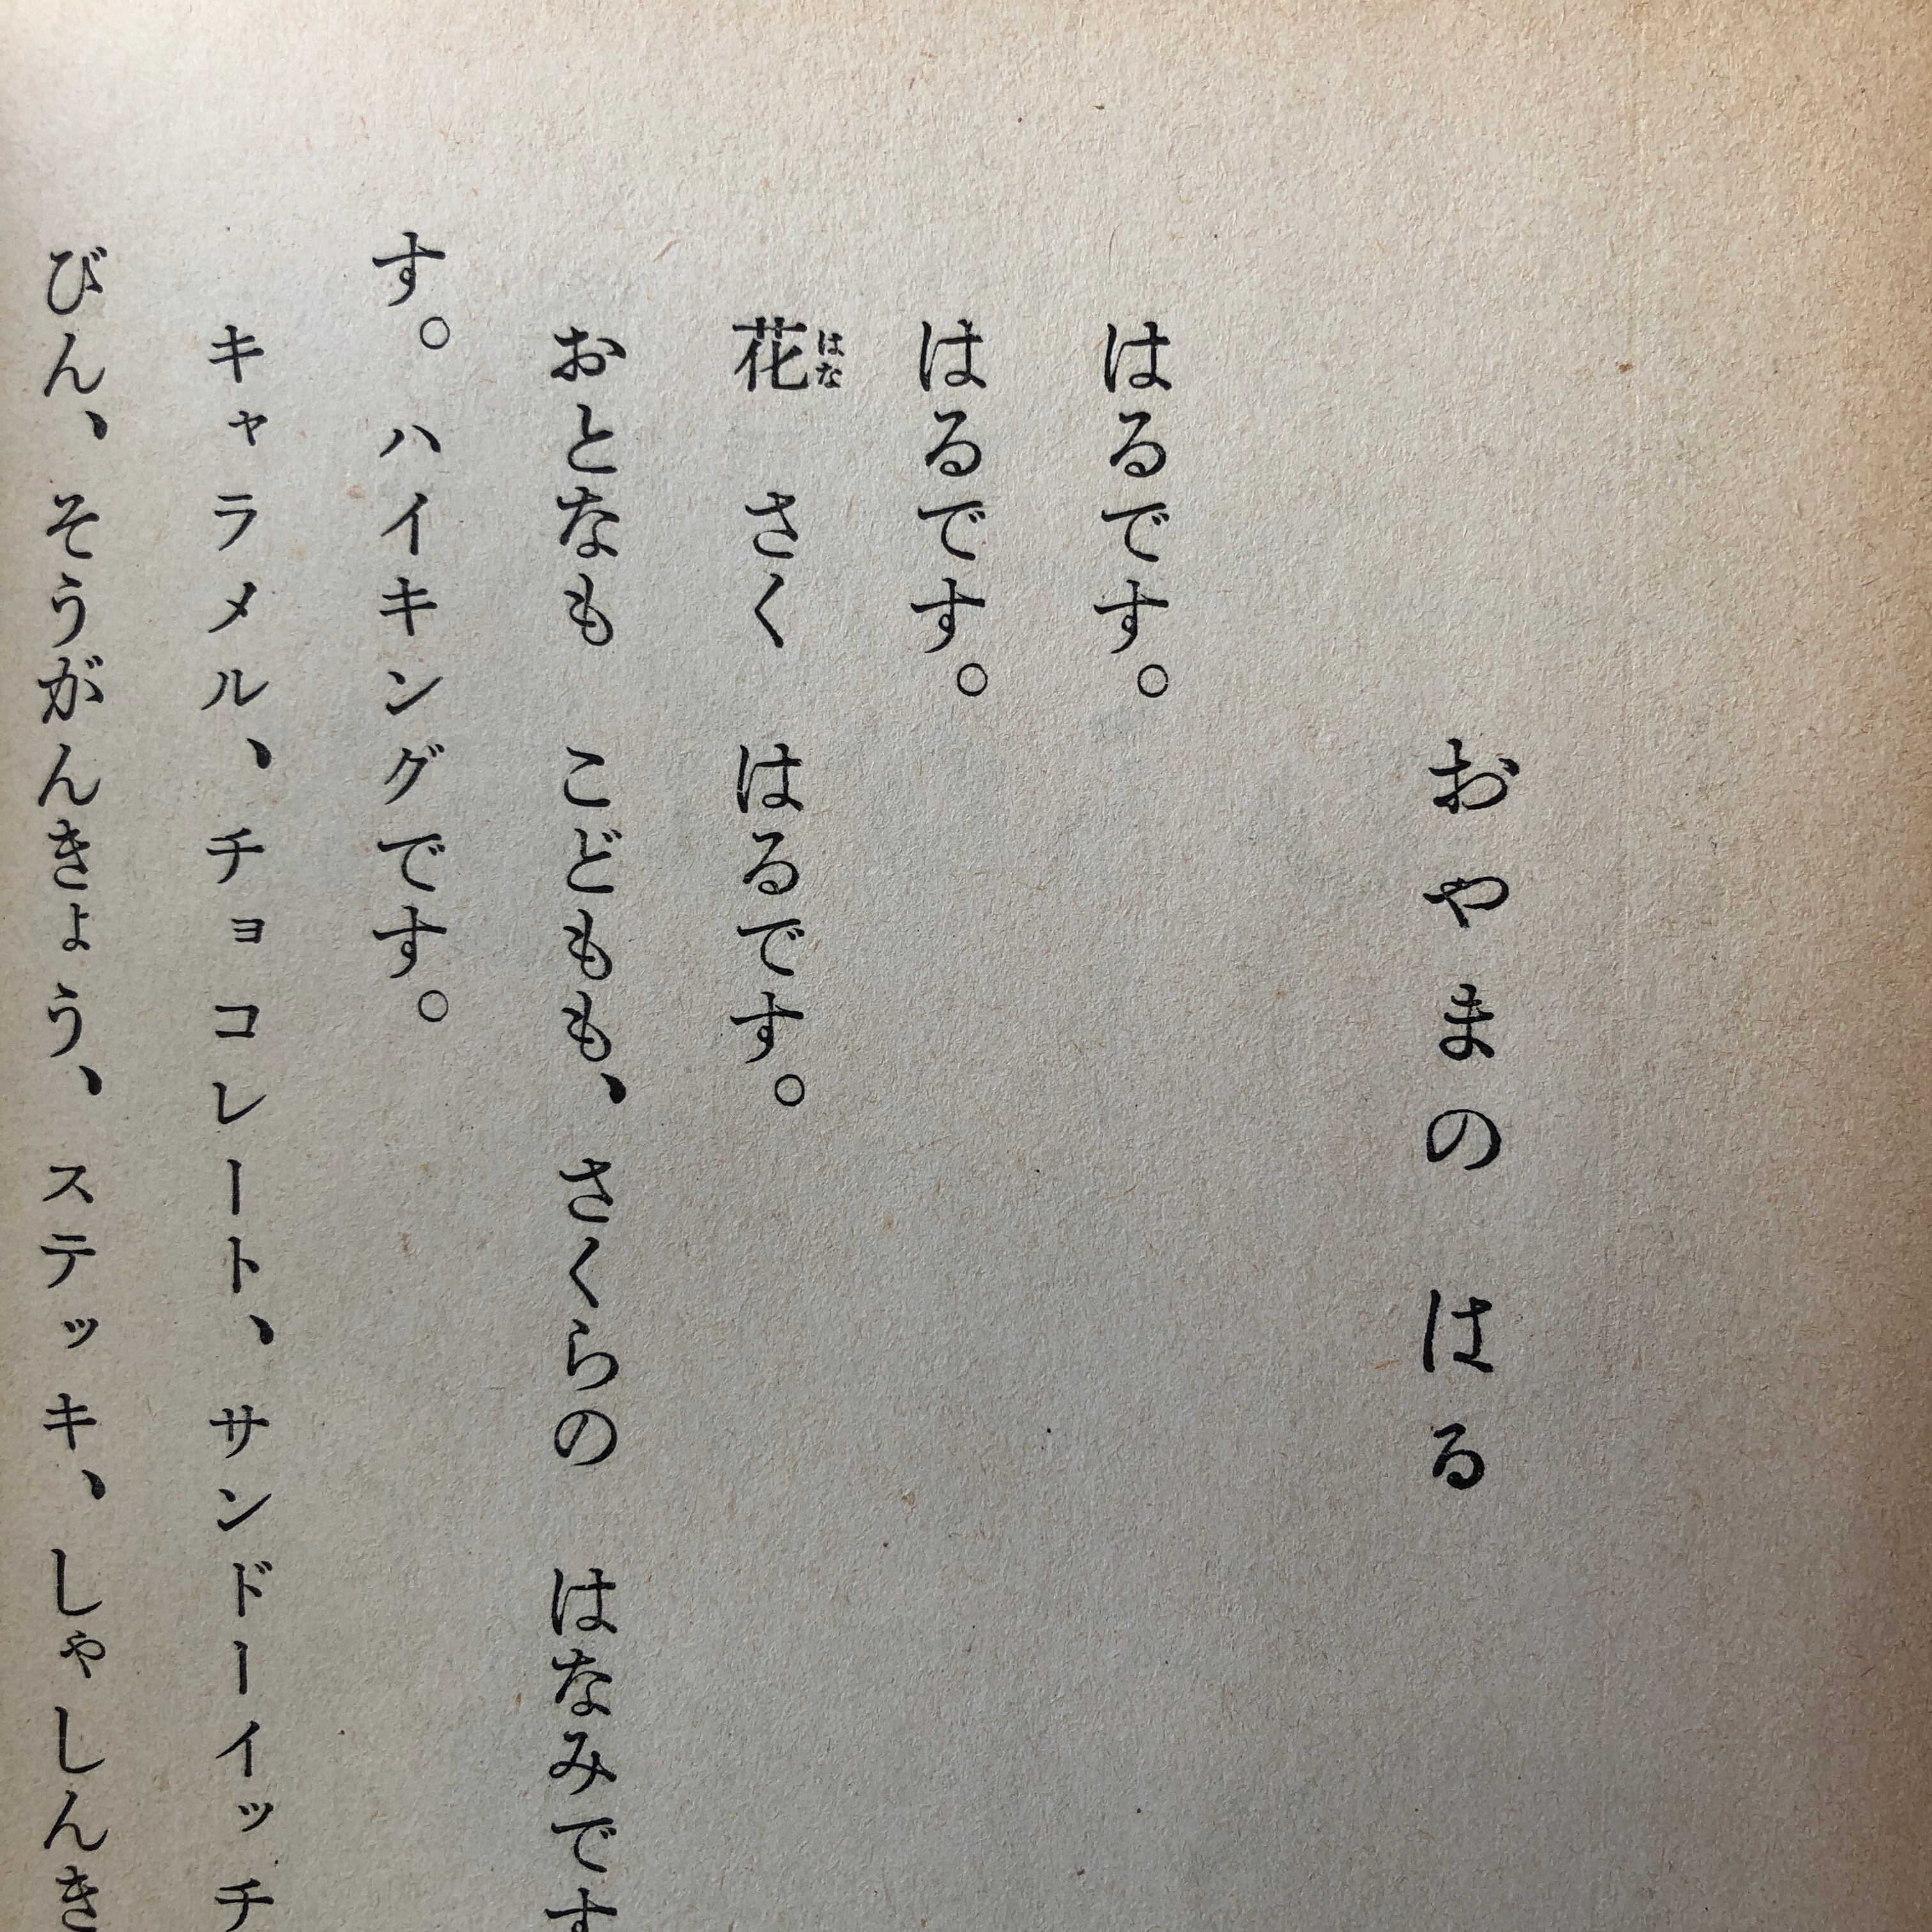 おやまの　はる
はるです。
はるです。
花　さく　はるです。
はな
おとなも　こどもも、さくらの　はなみです
す。ハイキングです。
キャラメル、チョコレート、サンドーイッチ
びん、そうがんきょう、ステッキ、しゃしんき